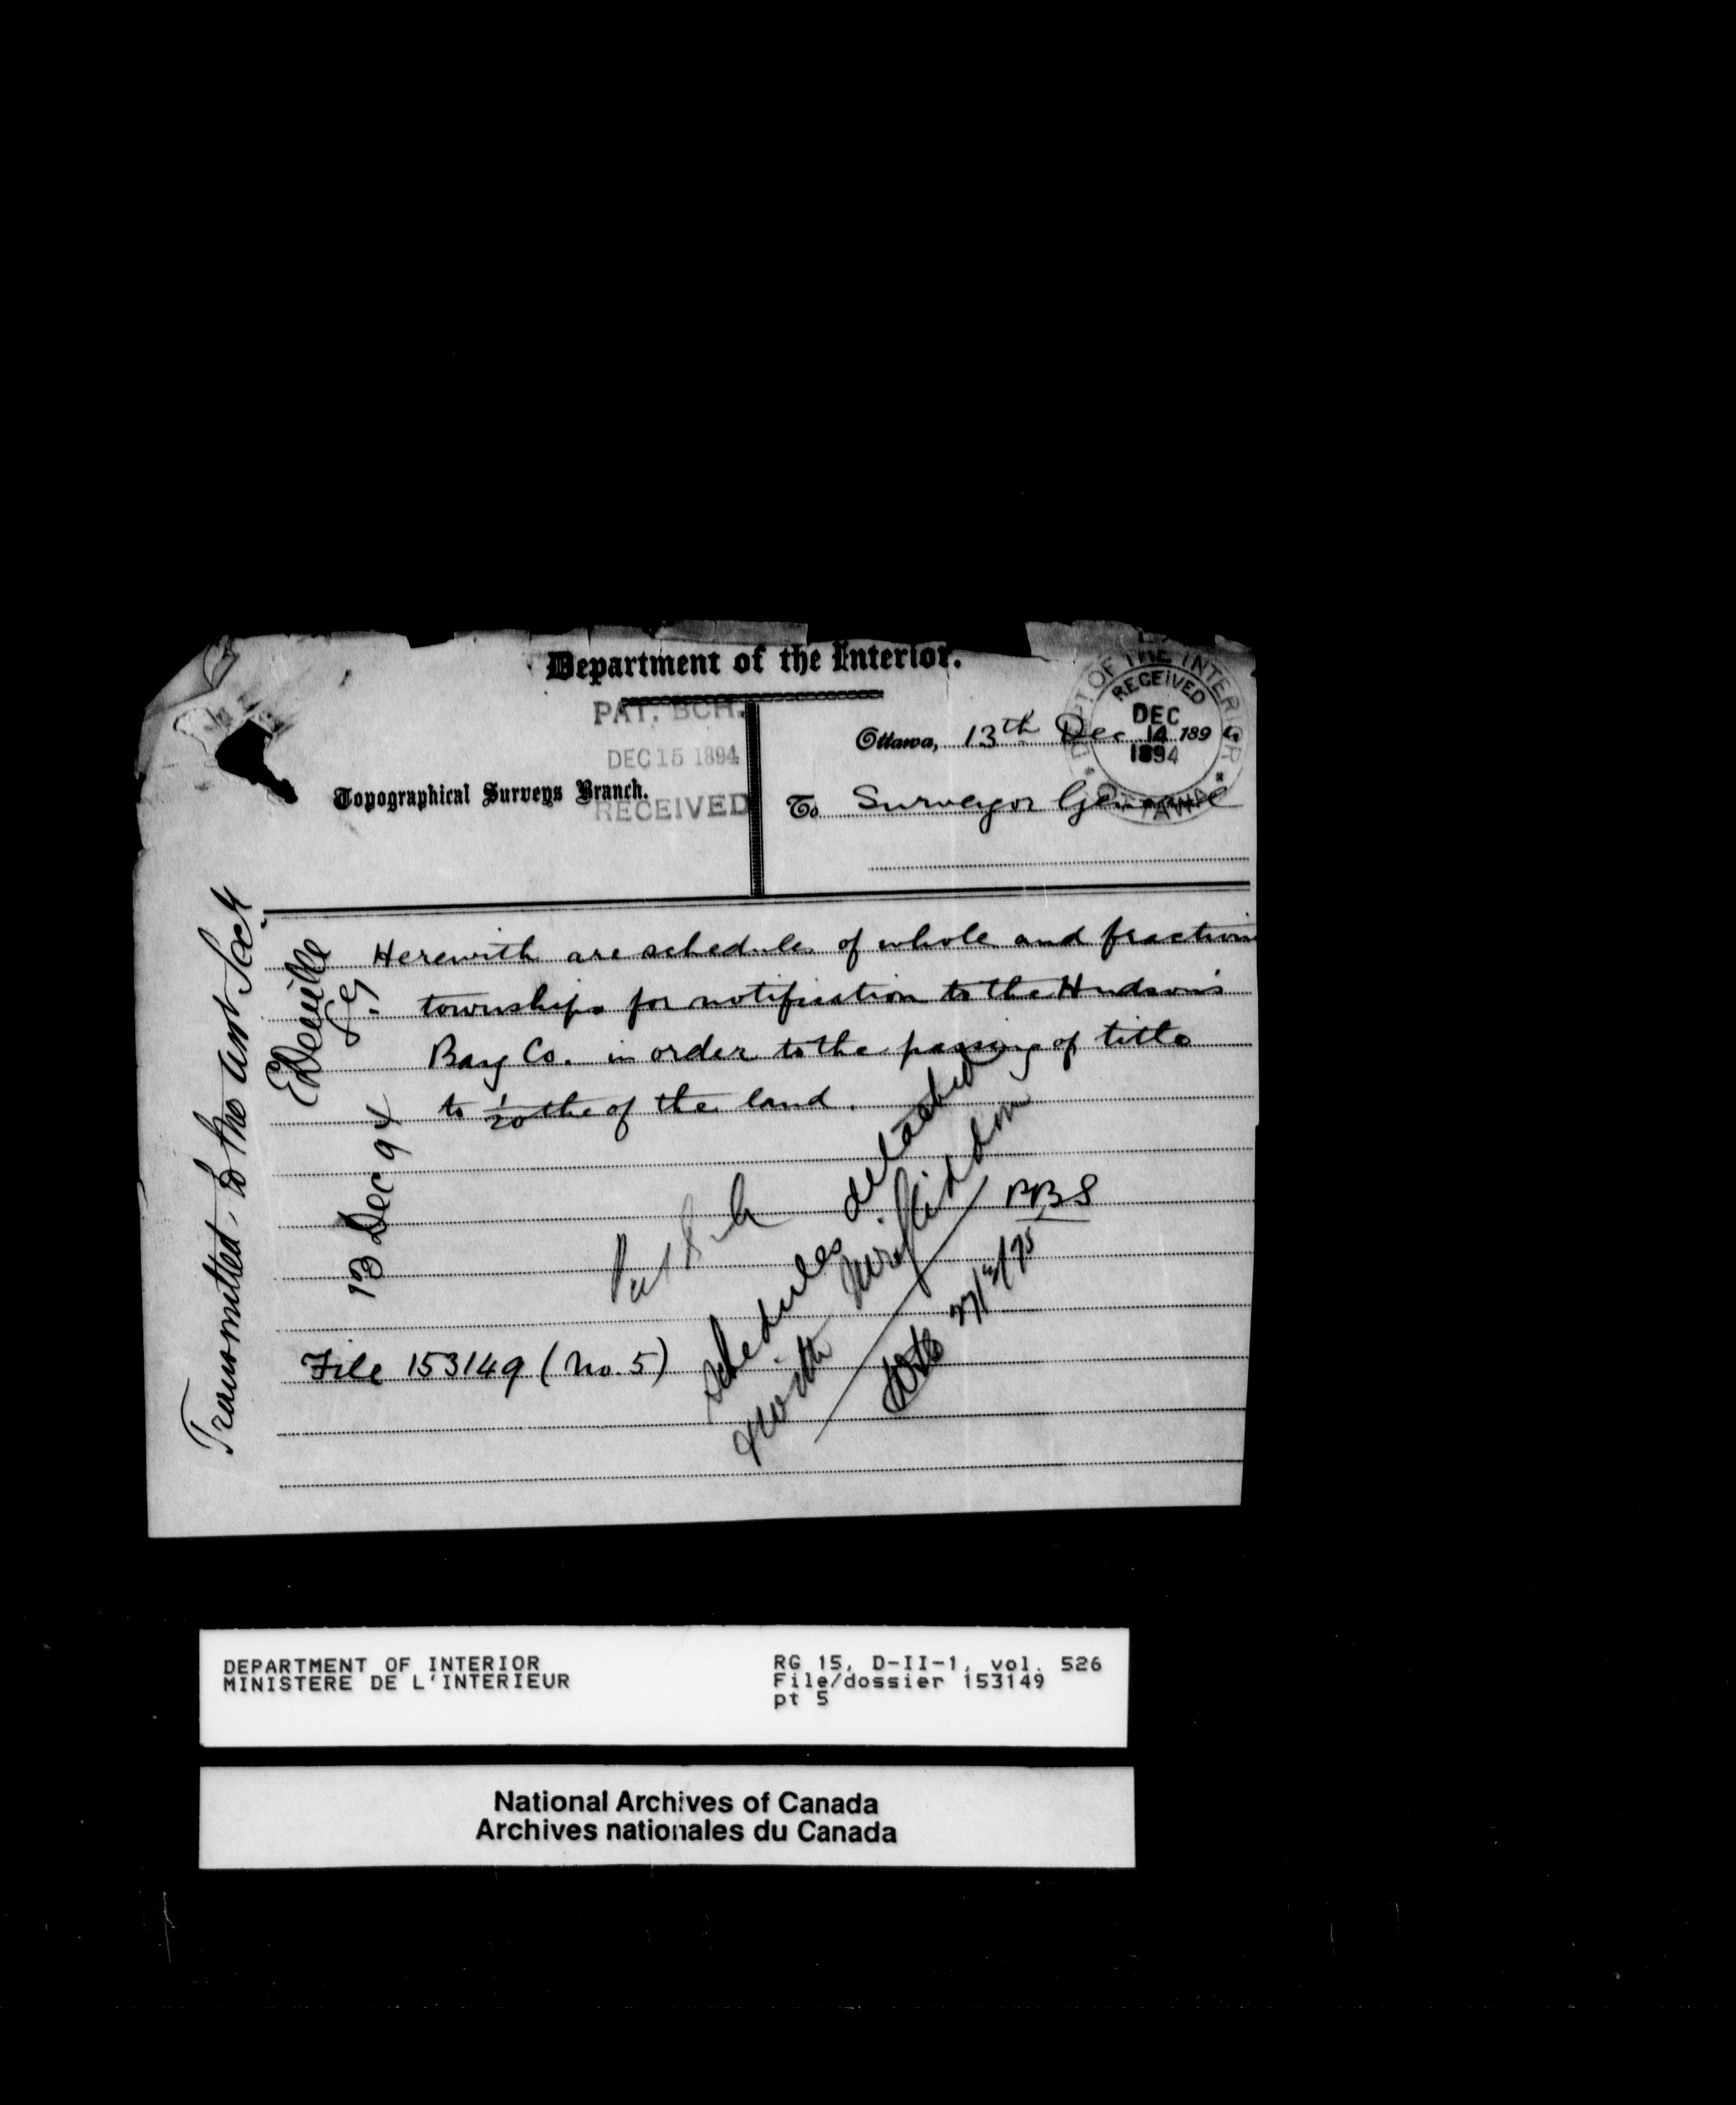 Department of the Interior.
PAT. BCH.
DEC 15 1894
RECEIVED
Topographical Surveys Branch.
DEPT OF THE INTERIOR
RECEIVED
DEC
14
1894
OTTAWA
Ottawa, 13th Dec 1894
To Surveyor General
Herewith are schedules of whole and fraction
townships for notification to the Hudson's
Bay Co. in order to the passing of title
to 1/20 the of the land.
BBS
File 153149 (No. 5)
Schedules detached
& with
Transmitted to the
EDeville
S.G.
13 Dec 94
DEPARTMENT OF INTERIOR
MINISTERE DE L'INTERIEUR
RG 15, D-II-1, vol. 526
File/dossier 153149
pt 5
National Archives of Canada
Archives nationales du Canada